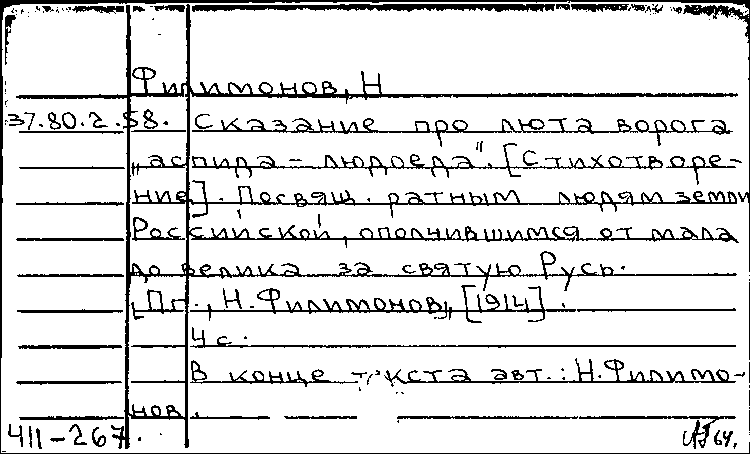 Филимонов, Н
37.80.2.58. Сказание про люта ворога
„аспида – людоеда". [Стихотворе-
ние]. Посвящ. ратным людям земли
Российской, ополчившимся от мала
до велика за святую Русь.
[Пг., Н. Филимонов, [1914].
4 с.
В конце текста авт.: Н. Филимо-
нов.
411-267.
64.